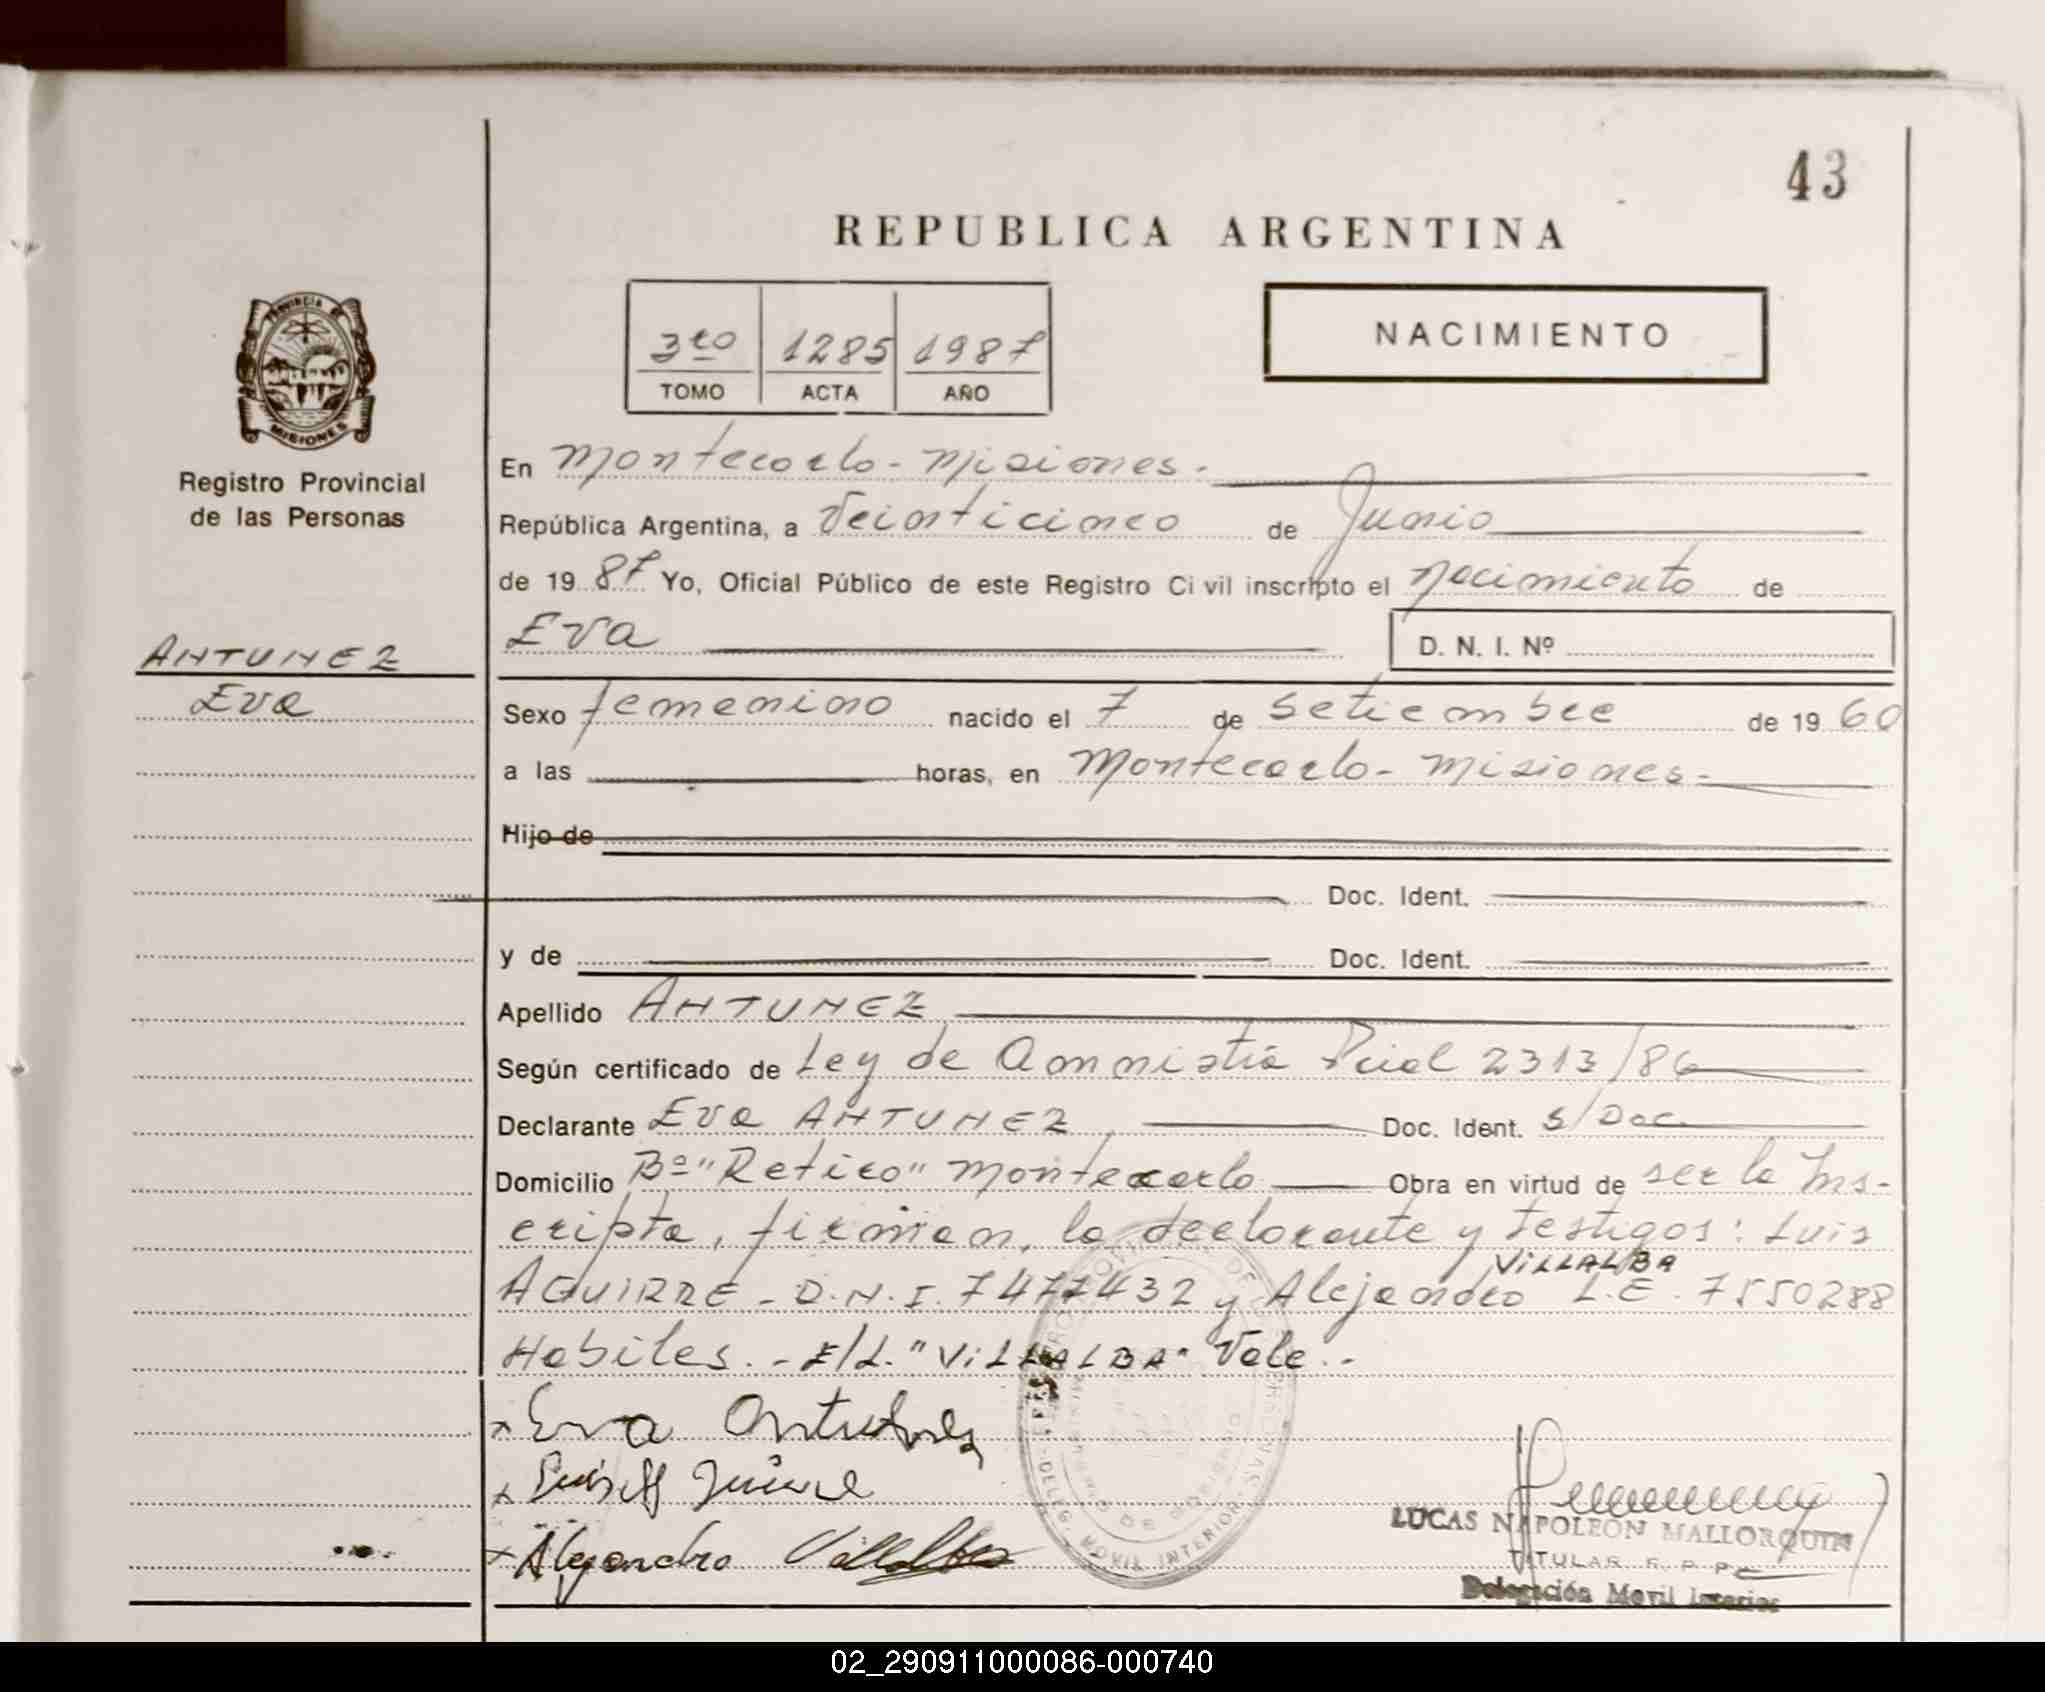 43
REPUBLICA ARGENTINA
3ro 1285 1987
TOMO ACTA AÑO
NACIMIENTO
PROVINCIA DE
MISIONES
Registro Provincial
de las Personas
En Montecarlo - Misiones.
República Argentina, a Veinticinco de Junio
de 19 87 Yo, Oficial Público de este Registro Civil inscripto el nacimiento de
ANTUNEZ
Eva
Eva D. N. I. Nº
Sexo femenino nacido el 7 de Setiembre de 19 60
a las horas, en Montecarlo - Misiones -
Hijo de
Doc. Ident.
y de Doc. Ident.
Apellido ANTUNEZ
Según certificado de Ley de Amnistía Pcial 2313/86
Declarante Eva ANTUNEZ Doc. Ident. S/Doc.
Domicilio Bº "Retiro" Montecarlo Obra en virtud de ser la Ins-
cripta, firman, la declarante y testigos: Luis
VILLALBA
AGUIRRE - D.N.I. 7477432 y Alejandro L.E. 7550288
Habiles. - E/L. "VILLALBA" Vale. -
x Eva Antunez
x Luis
x Alejandro Villalba
LUCAS NAPOLEÓN MALLORQUIN
TITULAR R. P. P.
Delegación Movil Interior
DELEG. MOVIL INTERIOR
02_290911000086-000740